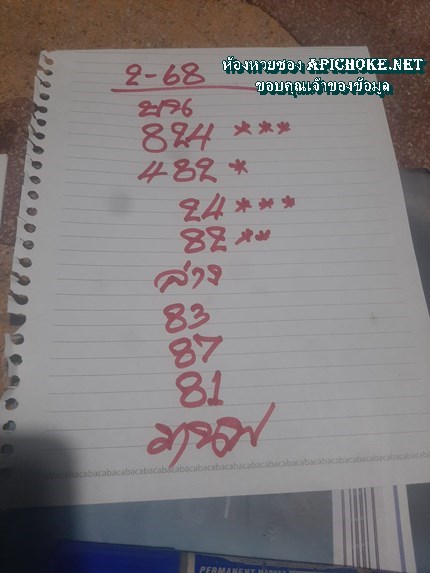 ห้องหวยซอง APICHOKE.NET
ขอบคุณเจ้าของข้อมูล
2-68
บน
824 ***
482 *
24 ***
82 **
ล่าง
83
87
81
abacabacabacabacabacabacabacabacabacabacabacabac
PERMANENT